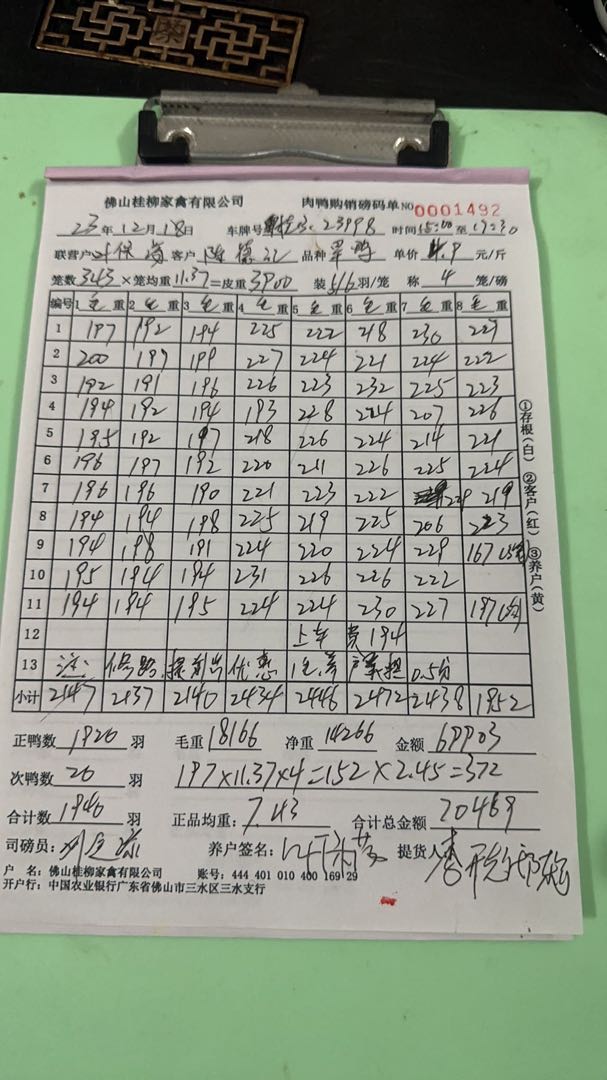 佛山桂柳家禽有限公司 肉鸭购销磅码单 NO 0001492
23年12月18日 车牌号 23998 时间15:00至19:30
联营户 叶保 客户 陈德 品种 单价 4.9 元/斤
笼数 343 ×笼均重 11.37 =皮重 3900 装 5/6 羽/笼 称 4 笼/磅
编号 1 毛重 2 毛重 3 毛重 4 毛重 5 毛重 6 毛重 7 毛重 8 重
1 197 192 194 225 222 218 230 229
2 200 199 199 227 224 221 224 222
3 192 191 196 226 223 232 225 223
4 194 192 194 193 228 224 207 226
5 195 192 197 218 226 224 214 221
6 196 197 192 220 211 226 225 224
7 196 196 190 221 223 222 224 219
8 194 194 198 225 219 225 206 223
9 194 198 191 224 220 224 229 167
10 195 194 194 231 226 226 222
11 194 194 195 224 224 230 227 197
12 上车费 194
13 注: 优惠 0.5分
小计 2147 2137 2140 2434 2446 2472 2438 1952
正鸭数 1920 羽 毛重 18166 净重 14266 金额 69903
次鸭数 20 羽 197×11.37×4=152×2.45=372
合计数 1940 羽 正品均重: 7.43 合计总金额 70469
司磅员: 养户签名: 提货人
户 名: 佛山桂柳家禽有限公司 账号: 444 401 010 400 169 29
开户行: 中国农业银行广东省佛山市三水区三水支行
①存根(白) ②客户(红) ③养户(黄)